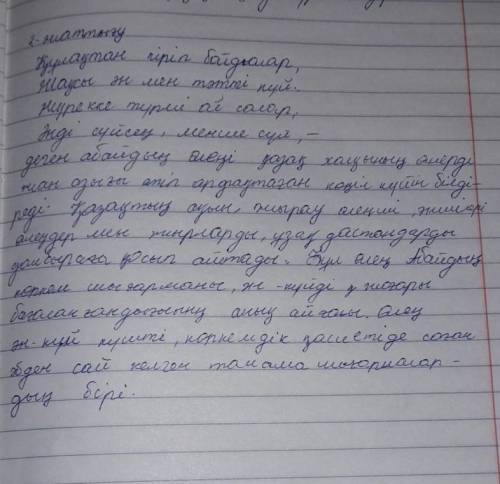 2-жаттығу
Құлақтан кіріп бойды алар,
Жақсы ән мен тәтті күй.
Жүрекке түрлі ой салар,
Әнді сүйсең, менше сүй, –
деген абайдың өлеңі қазақ халқының өнерді
жан азығы етіп ардақтаған көңіл күйін білді-
реді. Қазақтың ақын, жырау әнші, жыршы
өлеңдер мен жырларды, ұзақ дастандарды
домбыраға қосып айтады. Бұл өлең Абайдың
көркем шығарманы, ән-күйді жоғары
бағалағандығының анық айғағы. Өлең
ән-күй күшті, көркемдік қасиетіде соған
әбден сай келген тамаша шығармалар-
дың бірі.